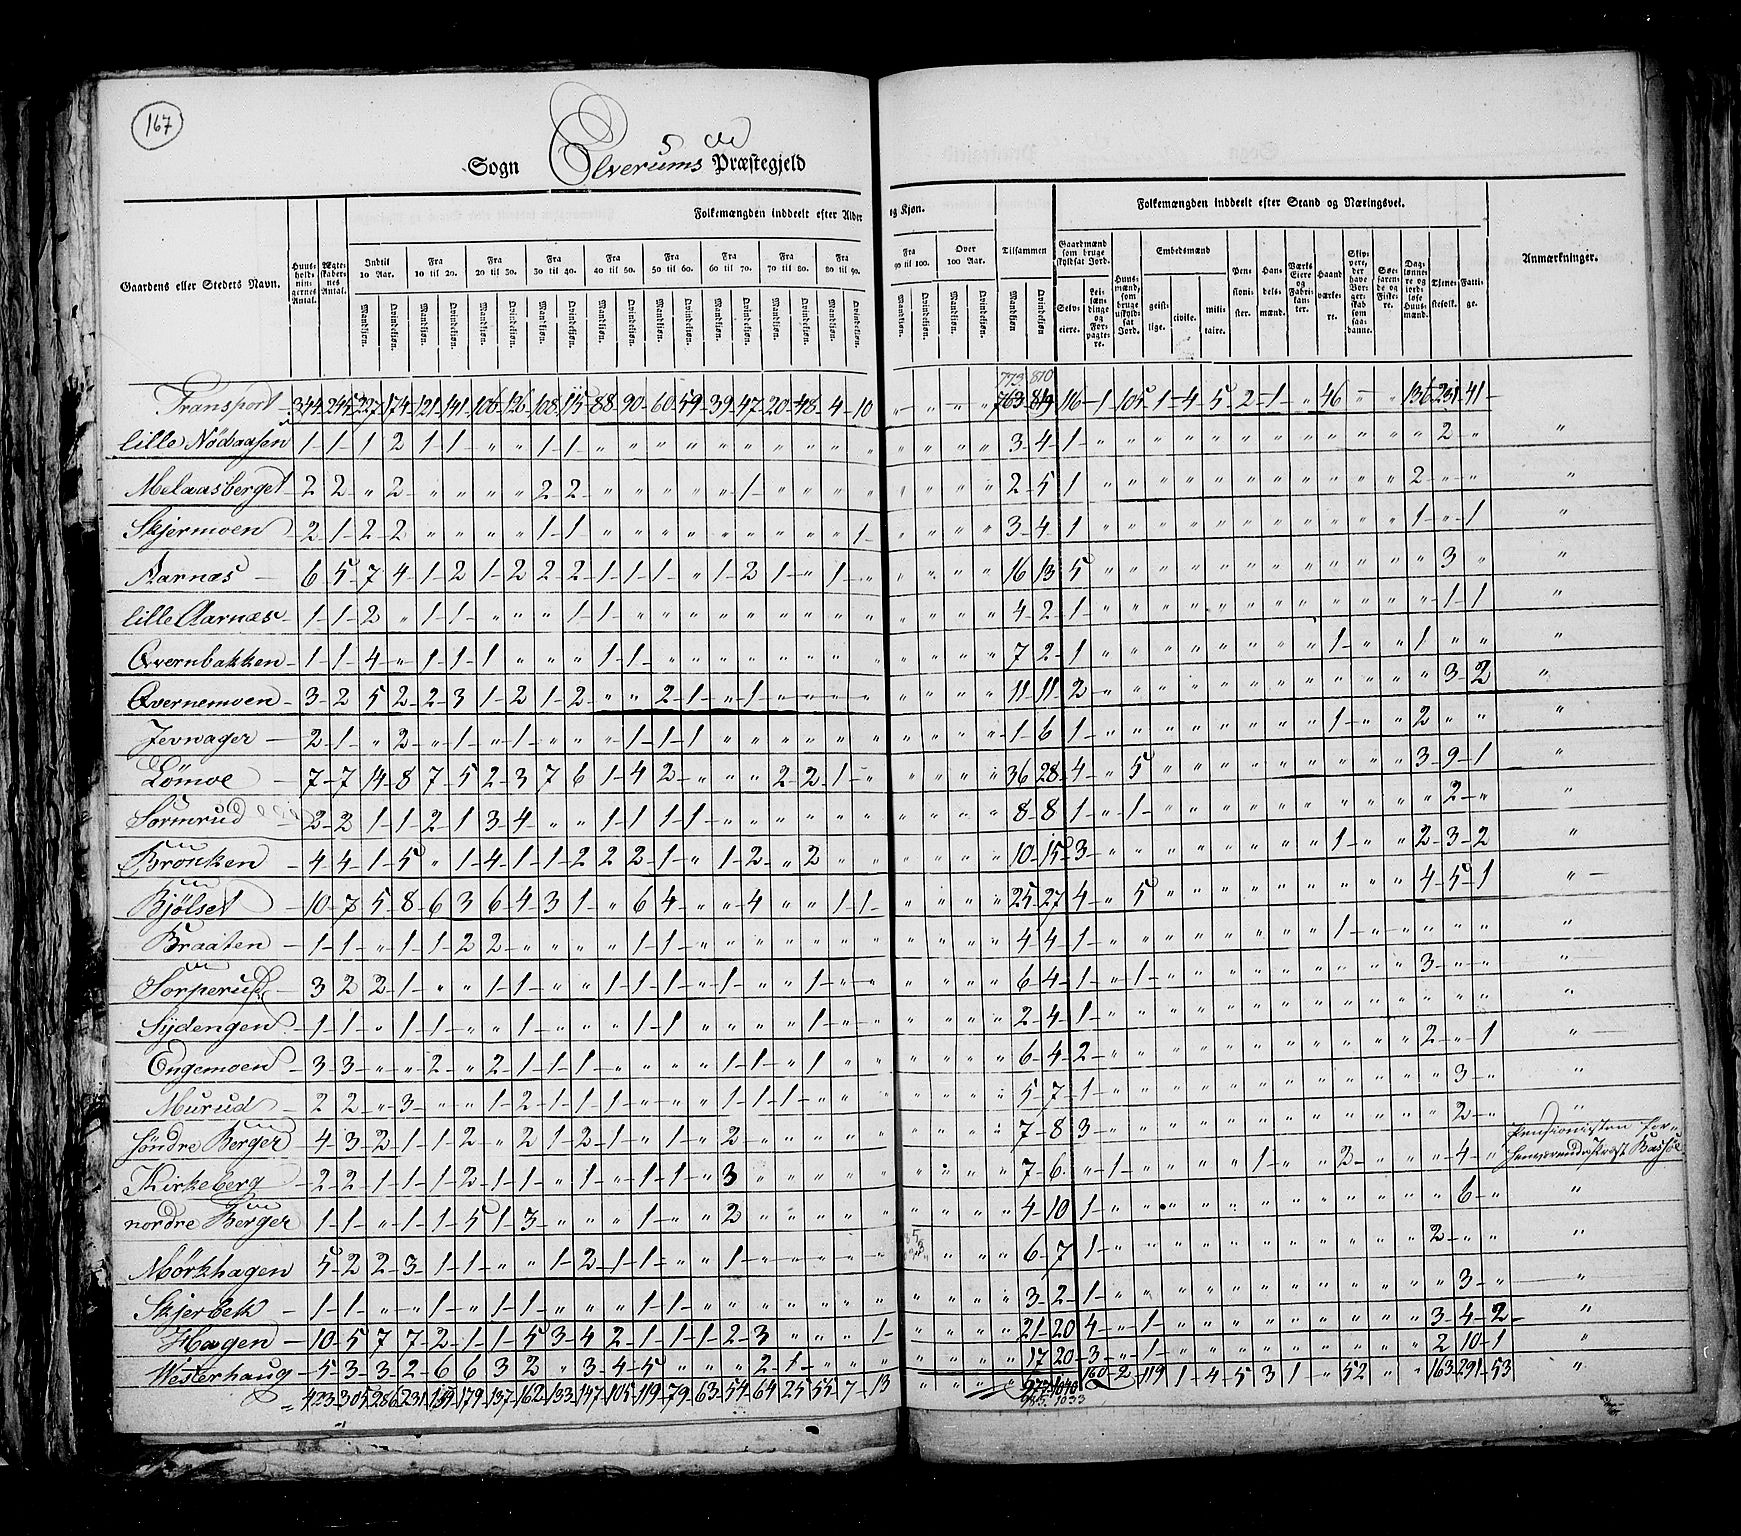 167
Sogn Elverums Præstegjeld
Gaardens eller Stedets Navn. Huusholdningernes Antal. Ægteskabernes Antal. Folkemængden inddeelt efter Alder og Kjøn. Tilsammen Folkemængden inddeelt efter Stand og Næringsvei. Anmærkninger.
Indtil 10 Aar. Fra 10 til 20. Fra 20 til 30. Fra 30 til 40. Fra 40 til 50. Fra 50 til 60. Fra 60 til 70. Fra 70 til 80. Fra 80 til 90. Fra 90 til 100. Over 100 Aar.
Mandkjøn. Qvindekjøn.
Gaardmænd som bruge skyldsat Jord. Selveiere. Leilændinge og Forpagtere. Huusmænd, som bruge uskyldsat Jord. Embedsmænd geistlige. civile. militaire. Pensionister. Handelsmænd. Værks Eiere og Fabrikanter. Haandværkere. Skippere, der have Borgerskab som saadanne. Søefarende og Fiskere. Daglønnere og jordløse Huusmænd. Tjenestefolk. Fattige.
773 810
Transport 344 245 227 174 121 141 106 126 108 115 88 90 60 59 39 47 20 48 4 10 " " " " 763 819 116 1 105 1 4 5 2 1 " 46 " " 136 231 41
lille Nødaasen 1 1 1 2 1 1 " " 1 1 " " " " " " " " " " " " " " 3 4 1 " " " " " " " " " " " " 2 " "
Melaasberget 2 2 " 2 " " " " 2 2 " " " " " 1 " " " " " " " " 2 5 1 " " " " " " " " " " " 2 " " "
Skjermoen 2 1 2 2 " " " " 1 1 " " " " " " " " " 1 " " " " 3 4 1 " " " " " " " " " " " 1 " 1 "
Aarnæs 6 5 7 4 1 2 1 2 2 2 1 1 1 " 1 2 1 " 1 " " " " " 16 13 5 " " " " " " " " " " " " 3 " "
lille Aarnæs 1 1 2 " 1 1 " " " 1 1 " " " " " " " " " " " " 4 2 1 " " " " " " " " " " " " 1 1 "
Qvernbakken 1 1 4 " 1 1 1 " " " 1 1 " " " " " " " " " " " " 7 2 1 " " " " " " " " 1 " " 1 " " "
Qvernemoen 3 2 5 2 2 3 1 2 1 2 " " 2 1 " 1 " " " " " " " " 11 11 2 " " " " " " " " " " " " 3 2 "
Jevnager 2 1 " 2 " 1 " 1 " " " 1 1 1 " " " " " " " " " " 1 6 1 " " " " " " " " 1 " " 2 " " "
Lömoe 7 7 14 8 7 5 2 3 7 6 1 4 2 " " " 2 2 1 " " " " " 36 28 4 " 5 " " " " " " " " " 3 9 1 "
Sormrud 2 2 1 1 2 1 3 4 " " 1 1 1 1 " " " " " " " " " " 8 8 1 " 1 " " " " " " " " " " 2 " "
Brönken 4 4 1 5 " 1 4 1 1 2 2 2 1 " 1 2 " 2 " " " " " " 10 15 3 " " " " " " " " 1 " " 2 3 2 "
Bjölset 10 7 5 8 6 3 6 4 3 1 " 6 4 " " 4 " " 1 1 " " " " 25 27 4 " 5 " " " " " " " " " 4 5 1 "
Braaten 1 1 " 1 1 2 2 " " " " 1 1 " " " " " " " " " " " 4 4 1 " " " " " " " " 1 " " " " " "
Torperud 3 2 2 1 " " 1 1 " " 1 1 1 " 1 " " 1 " " " " " " 6 4 1 " 1 " " " " " " " " " 3 " " "
Sydengen 1 1 " 1 1 " " 1 " " " 1 1 " " " " 1 " " " " " " 2 4 1 " " " " " " " " " " " " " " "
Engemoen 3 3 " " 2 " 2 1 1 1 " " " " 1 1 " 1 " " " " " " 6 4 2 " " " " " " " " " " " 2 " 1 "
Murud 2 2 " 3 " " 1 2 1 1 1 " " " 1 1 1 " " " " " " " 5 7 1 " " " " " " " " " " " " 3 " "
söndre Berger 4 3 2 1 1 2 " 2 1 2 1 " 1 " 2 " " " " " " " " " 7 8 3 " " " " " " " " " " " " 2 " "
Kirkeberg 2 2 1 1 1 2 1 1 " 1 " 1 1 " 3 " " " " " " " " " 7 6 " 1 " " " " 1 " " 2 " " " 4 " Pensionisten
nordre Berger 1 1 " 1 1 5 1 3 " " " 1 " " 2 " " " " " " " " " 4 10 1 " " " " " " " " " " " " 6 " "
Mörkhagen 5 2 2 3 1 1 " " 1 2 1 1 " " 1 " " " " " " " " " 6 7 1 " " " " " " " " " " " 2 " " "
Skjerbek 1 1 " " 1 " 1 1 " " " 1 1 " " " " " " " " " " " 3 2 1 " " " " " " " " " " " " 3 " "
Hagen 10 5 7 7 2 1 1 5 3 4 2 1 1 1 2 3 " " " 1 " " " " 21 20 4 " 1 " " " " " " " " " 3 4 2 "
Westerhaug 5 3 3 2 6 6 3 2 " 3 4 5 " " " 2 1 " " " " " " " 17 20 3 " 1 " " " " " " " " " 2 10 1 "
423 305 286 231 159 179 137 162 133 147 105 119 79 63 54 64 25 55 7 13 " " " " 977 1040 160 2 119 1 4 5 3 1 " 52 " " 163 291 53 "
985 1033